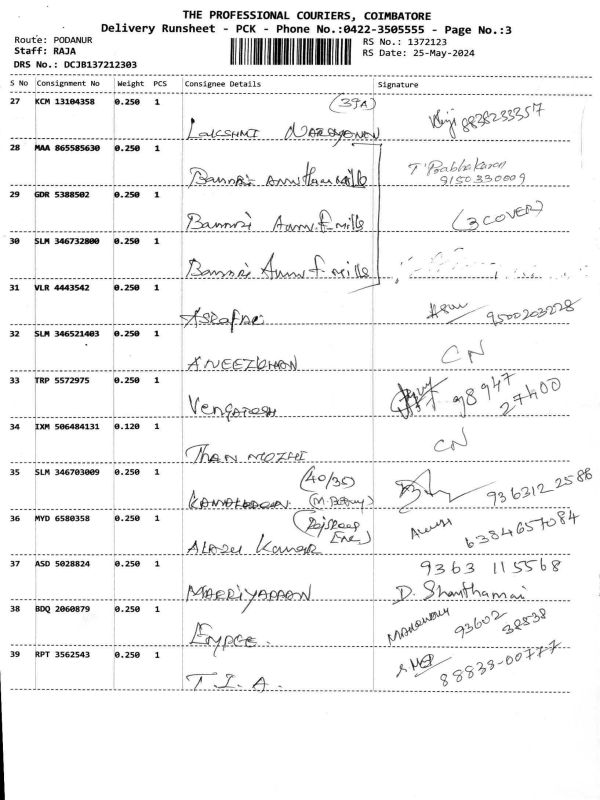 THE PROFESSIONAL COURIERS, COIMBATORE
Delivery Runsheet - PCK - Phone No.:0422-3505555 - Page No.:3
Route: PODANUR
RS No.: 1372123
Staff: RAJA
RS Date: 25-May-2024
DRS No.: DCJB137212303
S No Consignment No Weight PCS Consignee Details Signature
27 KCM 13104358 0.250 1 (39A)
LAKSHMI NARAYANAN 8838233357
28 MAA 865585630 0.250 1
Bannari T Prabhakaran
9150330009
29 GDR 5388502 0.250 1
Bannari (3 COVER)
30 SLM 346732800 0.250 1
Bannari
31 VLR 4443542 0.250 1
9500203228
32 SLM 346521403 0.250 1
ANEEZKHAN CN
33 TRP 5572975 0.250 1
Vengatesh 98947
27400
34 IXM 506484131 0.120 1
THAN MOZHI CN
35 SLM 346703009 0.250 1 (40/35)
9363122588
36 MYD 6580358 0.250 1
Kumar 6384657084
37 ASD 5028824 0.250 1 9363 115568
MARRIYAPPAN D. Shanthamai
38 BDQ 2060879 0.250 1
93602
38838
39 RPT 3562543 0.250 1
T.I.A. 88838-00777